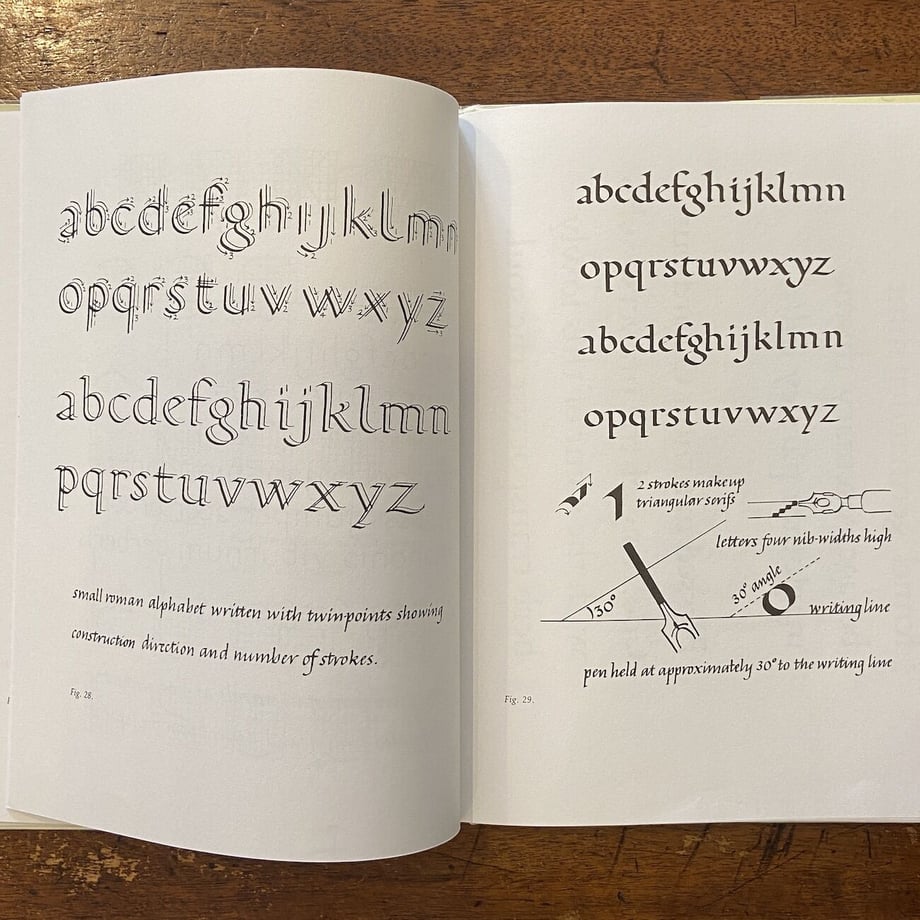 abcdefghijklmn
opqrstuvwxyz
abcdefghijklmn
pqrstuvwxyz
small roman alphabet written with twinpoints showing
construction direction and number of strokes.
Fig. 28.
abcdefghijklmn
opqrstuvwxyz
abcdefghijklmn
opqrstuvwxyz
2 strokes make up
triangular serifs
letters four nib-widths high
30°
30° angle
writing line
pen held at approximately 30° to the writing line
Fig. 29.